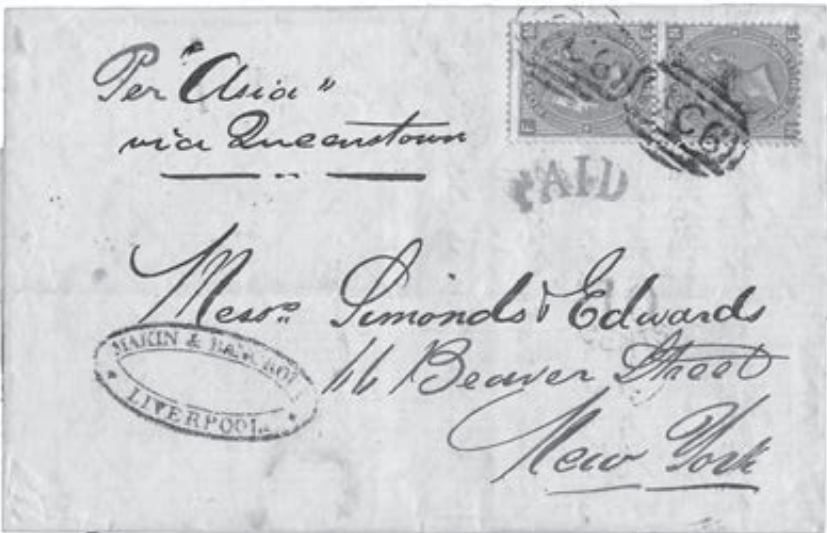 Per "Asia"
via Queenstown
C61
PAID
Messrs Simonds & Edwards
66 Beaver Street
New York
MAKIN &
LIVERPOOL